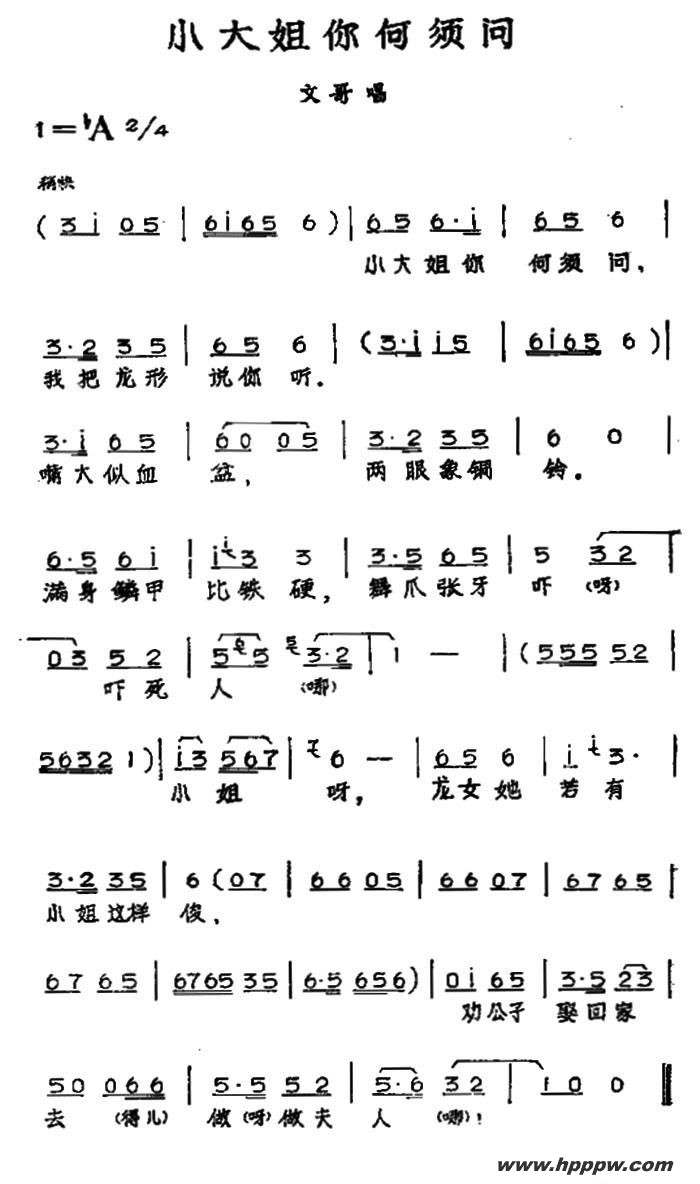 小大姐你何须问
文哥唱
1=♭A 2/4
稍快
( 3 i 0 5 | 6 i 6 5 6 ) | 6 5 6 · i | 6 5 6 |
小大姐你 何须问，
3 · 2 3 5 | 6 5 6 | ( 3 · i i 5 | 6 i 6 5 6 ) |
我把龙形 说你听．
3 · i 6 5 | 6 0 0 5 | 3 · 2 3 5 | 6 0 |
嘴大似血 盆， 两眼象铜 铃。
6 · 5 6 i | i 3 3 | 3 · 5 6 5 | 5 3 2 |
满身鳞甲 比铁硬， 舞爪张牙 吓（呀）
0 3 5 2 | 5 6 5 5 3 · 2 | 1 — | ( 5 5 5 5 2 |
吓死 人（哪）
5 6 3 2 1 ) | i 3 5 6 7 | 7 6 — | 6 5 6 | i i 3 · |
小姐 呀， 龙女她 若有
3 · 2 3 5 | 6 ( 0 7 | 6 6 0 5 | 6 6 0 7 | 6 7 6 5 |
小姐这样 俊，
6 7 6 5 | 6 7 6 5 3 5 | 6 · 5 6 5 6 ) | 0 i 6 5 | 3 · 5 2 3 |
劝公子 娶回家
5 0 0 6 6 | 5 · 5 5 2 | 5 · 6 3 2 | 1 0 0 ‖
去（得儿） 做（呀）做夫 人（哪）！
www.hpppw.com